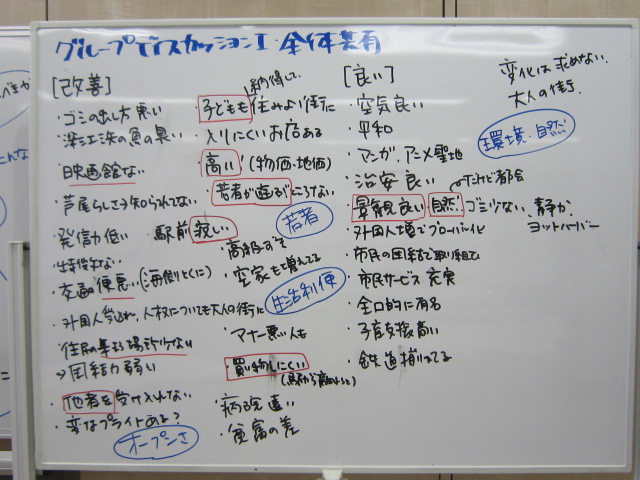 グループディスカッションⅠ・全体共有
[改善]
・ゴミの出し方悪い
・深江浜の魚の臭い
・映画館ない
・芦屋らしさ→知られてない
・発信力低い
・交通の便悪い(海側とくに)
・外国人受入れ、人权についても大人の街に
・住民の集まる場所少ない
→団結力弱い
・他者を受け入れない
・変なプライドある?
オープンさ
納得して
・子どもも住みよい街に
・入りにくいお店ある
・高い(物価・地価)
・若者が遊ぶところない
・駅前寂しい
若者
・高級すぎ
・空家も増えてる
生活利便
・マナー悪い人も
・買い物しにくい
・病院遠い
・貧富の差
[良い]
・空気良い
・平和
・マンガ、アニメ聖地
・治安良い
だけど都会
・景観良い 自然 ゴミ少ない、静か、
ヨットハーバー
・外国人増でグローバル化
・市民の団結で取り組む
・市民サービス充実
・全国的に有名
・子育支援高い
・鉄道揃ってる
変化は求めない、
大人の街
環境・自然